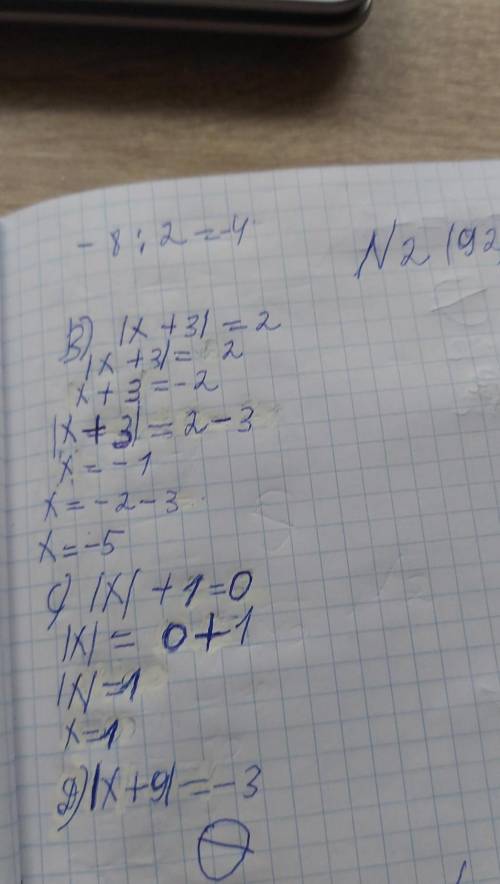 - 8 : 2 = -4
N2 192
B) |x + 3| = 2
|x + 3| = 2
x + 3 = -2
|x + 3| = 2 - 3
x = - 1
x = -2 - 3
x = -5
C) |x| + 1 = 0
|x| = 0 + 1
|x| = 1
x = 1
Д) |x + 9| = -3
∅